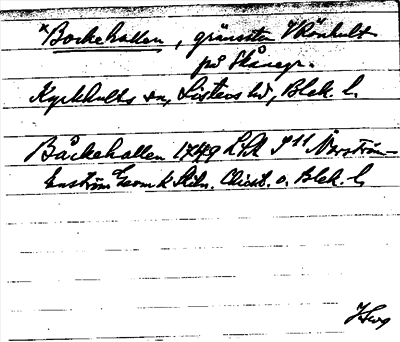 *Bockehallen, gränssten Rönhult
på Skånegr.
Kyrkhults sn, Listers hd, Blek. l.
Båckehallen 1749 LSA I 11 Norström-
Enström Geom k Skån. Christ. o. Blek. l.